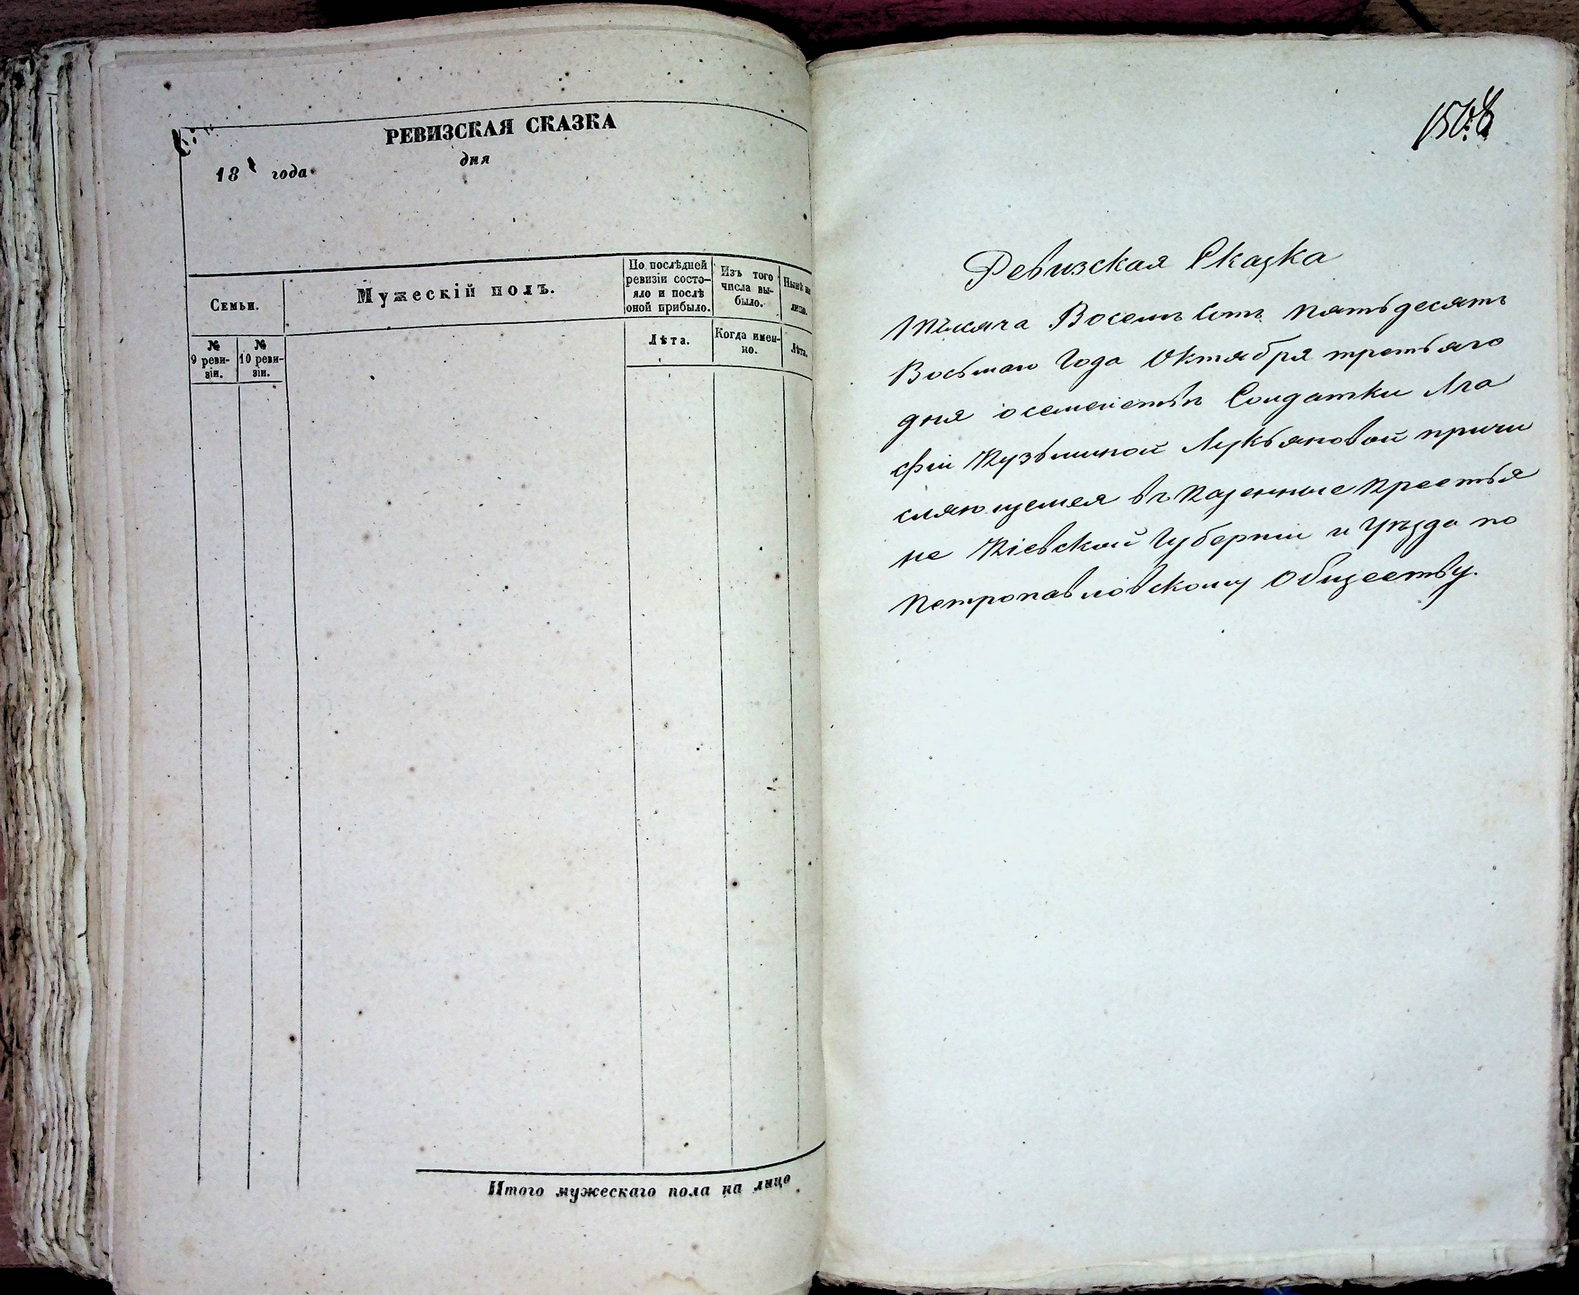 РЕВИЗСКАЯ СКАЗКА
дня
18 года
Семьи.
Мужескій полъ.
По послѣдней ревизіи состо-
яло и послѣ
оной прибыло.
Изъ того
числа вы-
было.
№
9 реви-
зіи.
№
10 реви-
зіи.
Лѣта.
Когда имен-
но.
Лѣта.
Итого мужескаго пола на лицо
Ревизская Сказка
Тысяча Восемь Сотъ пятьдесятъ
Восьмаго Года Октября третьяго
дня осемействѣ Солдатки Ага
фіи Кузьминой Лукьяновой причи
сляющемся въ Казенные Крестья
не Кіевской Губерніи и Уѣзда по
Петропавловскому Обществу.